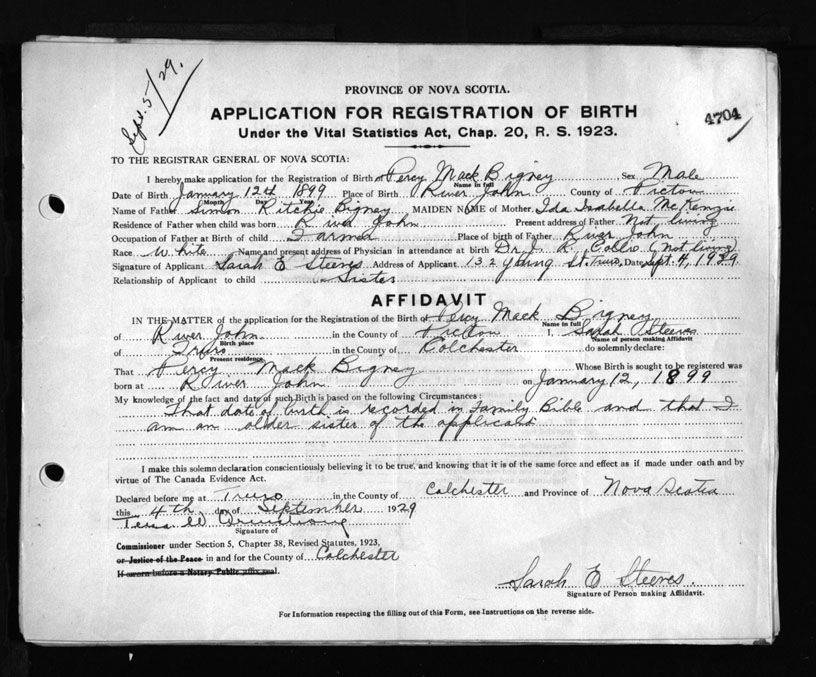 Sept. 5/29.
PROVINCE OF NOVA SCOTIA.
APPLICATION FOR REGISTRATION OF BIRTH
4704
Under the Vital Statistics Act, Chap. 20, R. S. 1923.
TO THE REGISTRAR GENERAL OF NOVA SCOTIA:
I hereby make application for the Registration of Birth of Percy Mack Bigney Sex Male
Name in full
Date of Birth January 12th 1899 Place of Birth River John County of Pictou
Month Day Year
Name of Father Simon Ritchie Bigney MAIDEN NAME of Mother Ida Isabella McKenzie
Residence of Father when child was born River John Present address of Father Not living
Occupation of Father at Birth of child Farmer Place of birth of Father River John
Race White Name and present address of Physician in attendance at birth Dr. J. K. Collie (not living)
Signature of Applicant Sarah E Steeves Address of Applicant 132 Young St. Truro, Date Sept. 4, 1929
Relationship of Applicant to child Sister
AFFIDAVIT
IN THE MATTER of the application for the Registration of the Birth of Percy Mack Bigney
Name in full
of River John in the County of Pictou I, Sarah Steeves
Birth place Name of person making Affidavit
of Truro in the County of Colchester do solemnly declare:
Present residence
That Percy Mack Bigney Whose Birth is sought to be registered was
born at River John on January 12, 1899
My knowledge of the fact and date of such Birth is based on the following Circumstances:
That date of birth is recorded in Family Bible and that I
am an older sister of the applicant
I make this solemn declaration conscientiously believing it to be true, and knowing that it is of the same force and effect as if made under oath and by
virtue of The Canada Evidence Act.
Declared before me at Truro in the County of Colchester and Province of Nova Scotia
this 4th day of September 1929
Armstrong
Signature of
Commissioner under Section 5, Chapter 38, Revised Statutes, 1923,
or Justice of the Peace in and for the County of Colchester
If sworn before a Notary Public affix seal.
Sarah E Steeves
Signature of Person making Affidavit.
For Information respecting the filling out of this Form, see Instructions on the reverse side.